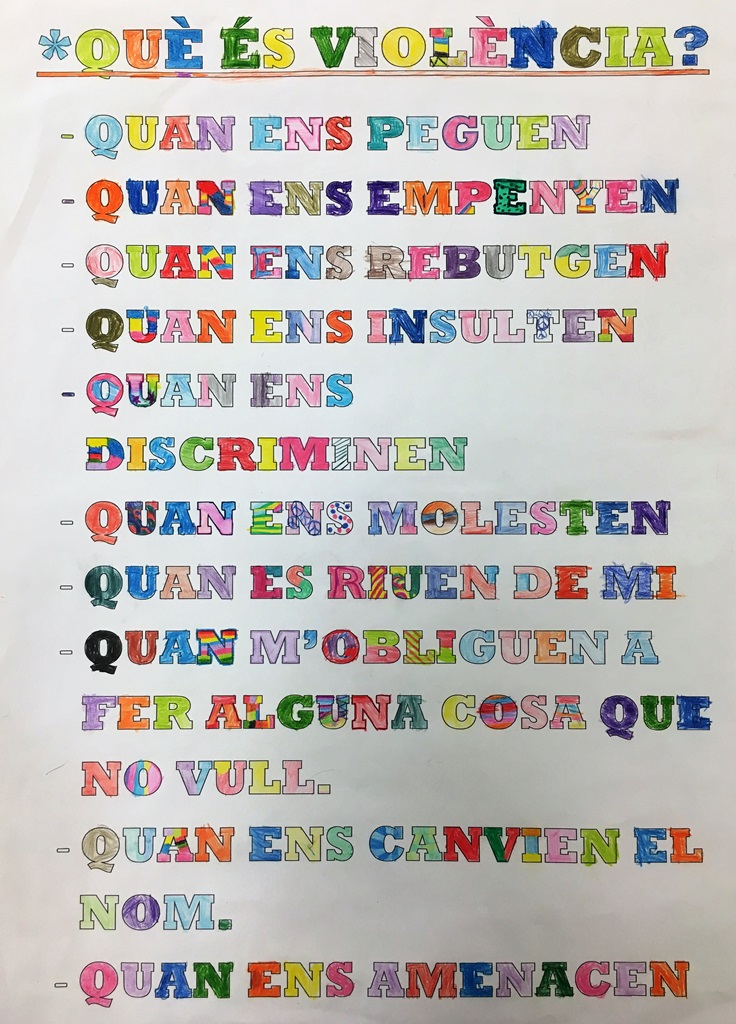 *QUÈ ÉS VIOLÈNCIA?
- QUAN ENS PEGUEN
- QUAN ENS EMPENYEN
- QUAN ENS REBUTGEN
- QUAN ENS INSULTEN
- QUAN ENS
DISCRIMINEN
- QUAN ENS MOLESTEN
- QUAN ES RIUEN DE MI
- QUAN M'OBLIGUEN A
FER ALGUNA COSA QUE
NO VULL.
- QUAN ENS CANVIEN EL
NOM.
- QUAN ENS AMENACEN